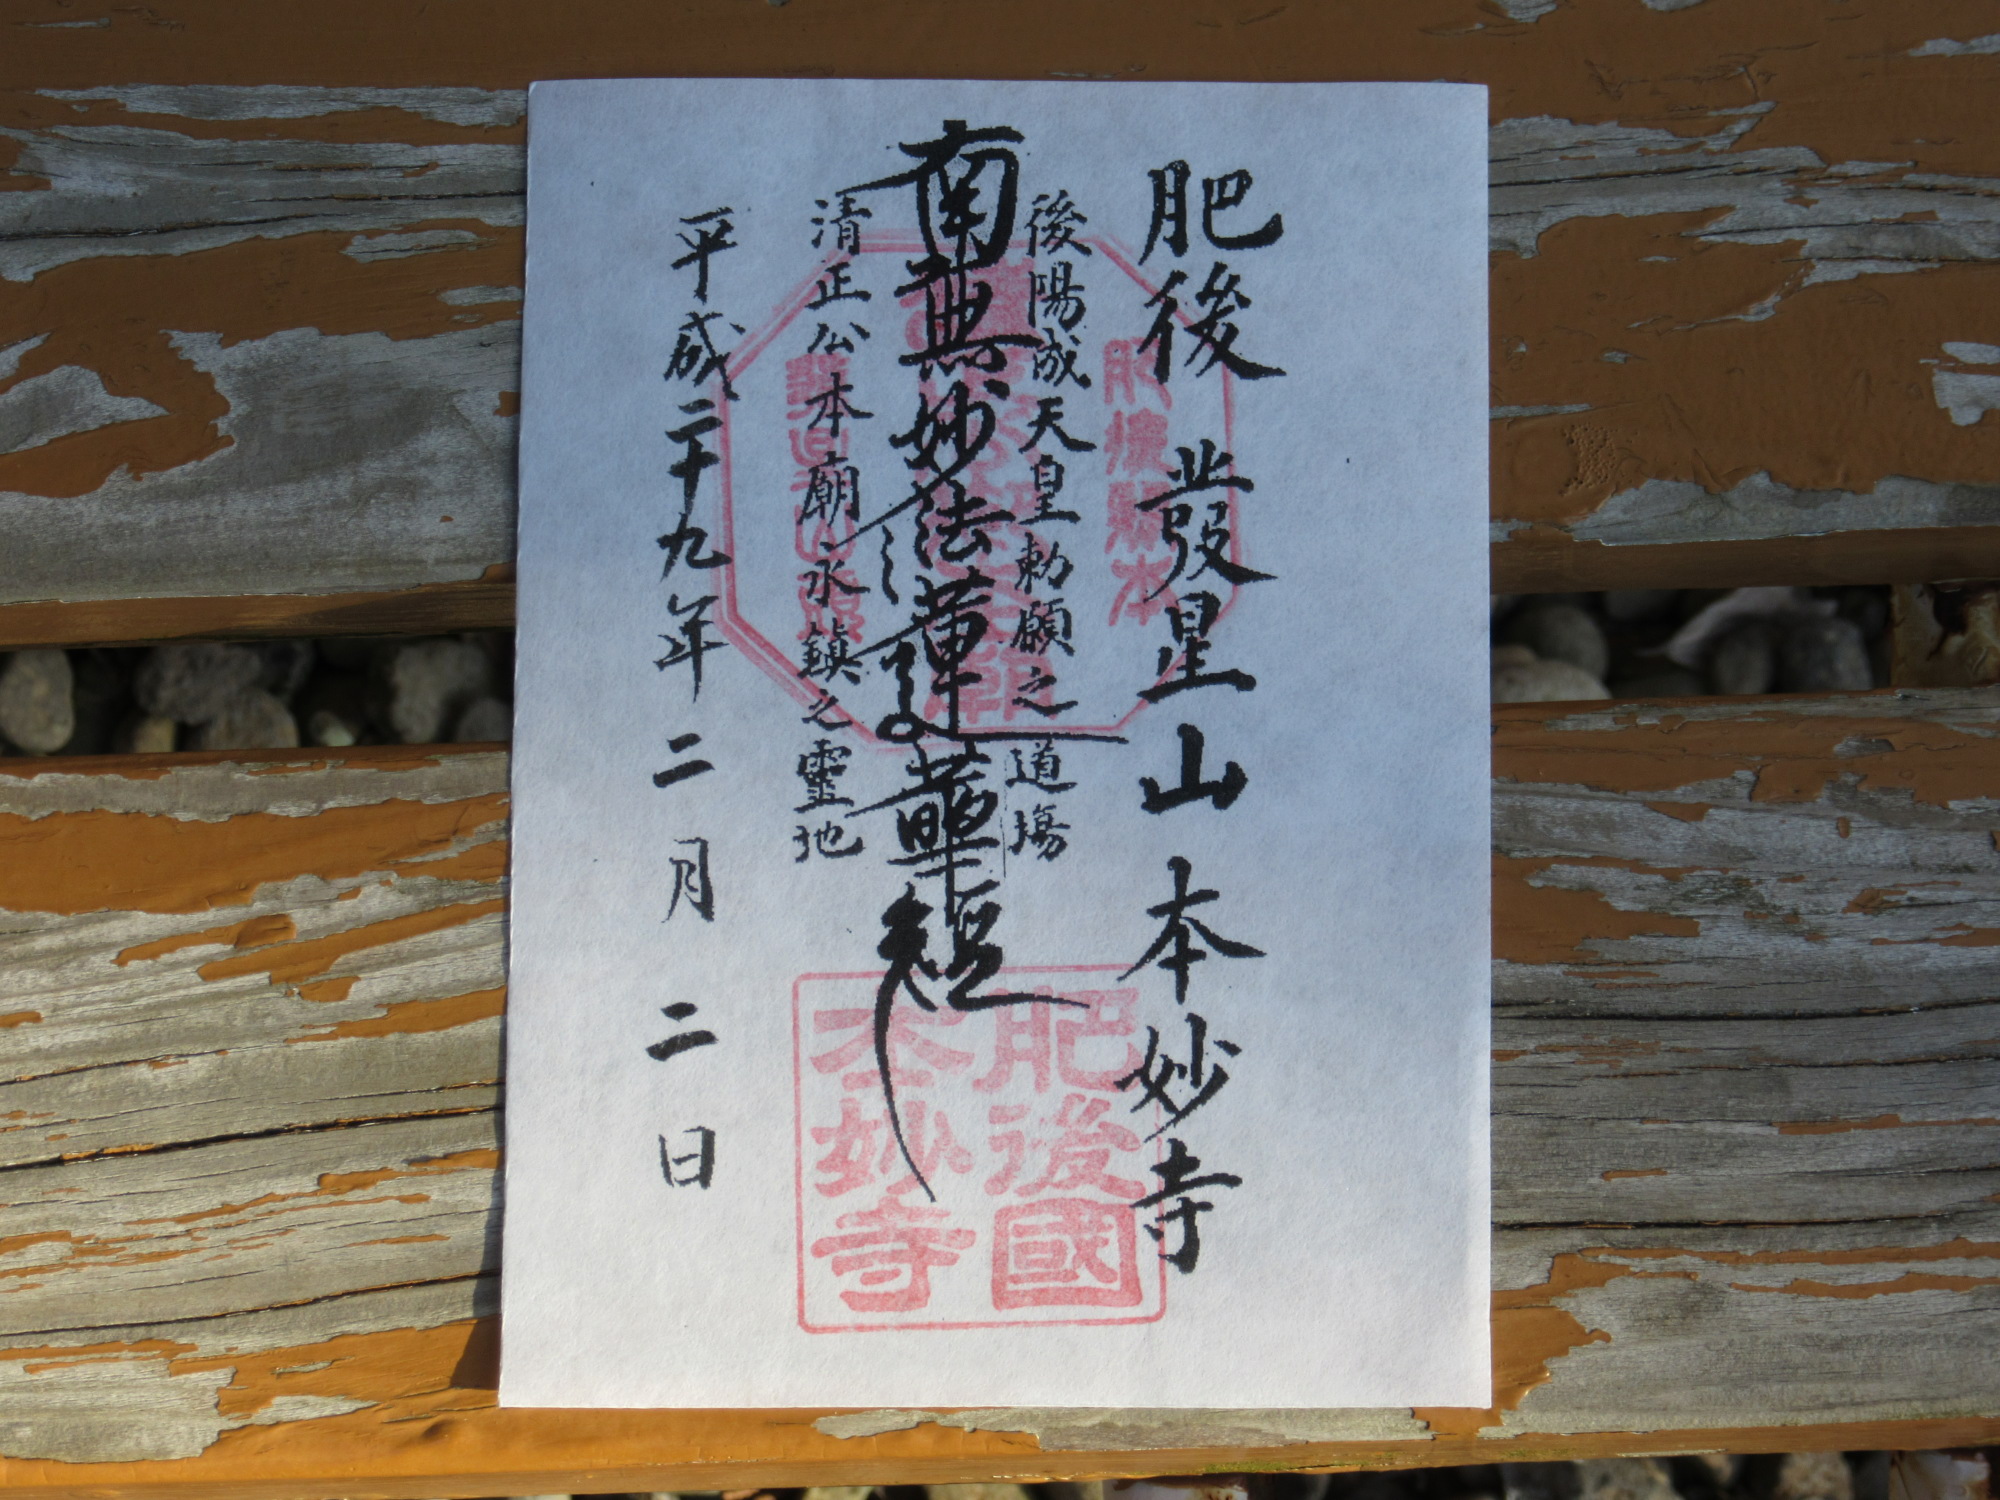 肥後 發星山 本妙寺
後陽成天皇勅願之道場
南無妙法蓮華経
清正公本廟永鎮之靈地
平成二十九年二月二日
肥後國
本妙寺
肥後熊本